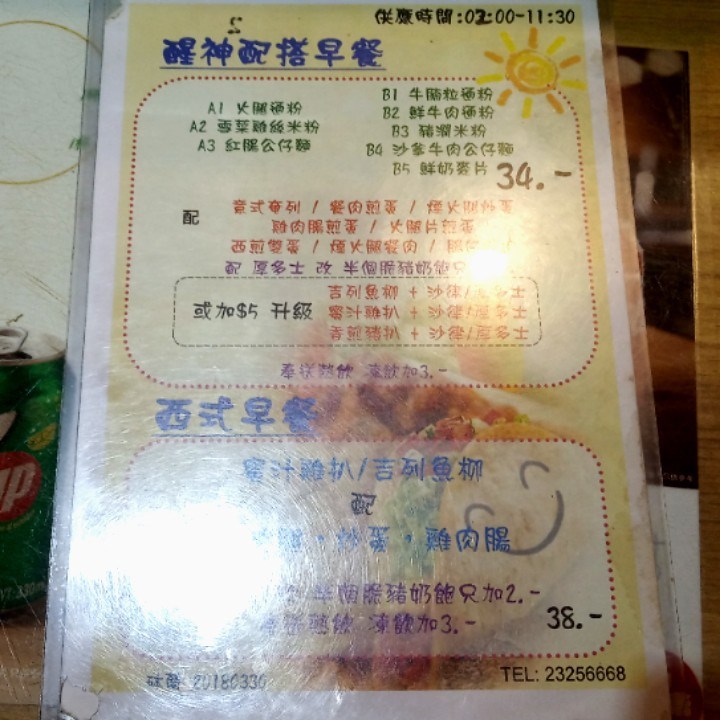 供應時間:02:00-11:30
醒神配搭早餐
A1 火腿通粉
A2 雪菜雞絲米粉
A3 紅腸公仔麵
B1 牛腩粒通粉
B2 鮮牛肉通粉
B3 豬潤米粉
B4 沙爹牛肉公仔麵
B5 鮮奶麥片
34.-
配
意式奄列 / 餐肉煎蛋 / 煙火腿炒蛋
雞肉腸煎蛋 / 火腿片煎蛋
西煎雙蛋 / 煙火腿餐肉 /
配 厚多士 改 半個脆豬奶飽只
或加$5 升級
吉列魚柳 + 沙律/厚多士
蜜汁雞扒 + 沙律/厚多士
香煎豬扒 + 沙律/厚多士
奉送熱飲 凍飲加3.-
西式早餐
蜜汁雞扒/吉列魚柳
配
炒蛋・雞肉腸
半個脆豬奶飽只加2.-
奉送熱飲 凍飲加3.-
38.-
20180330
TEL: 23256668